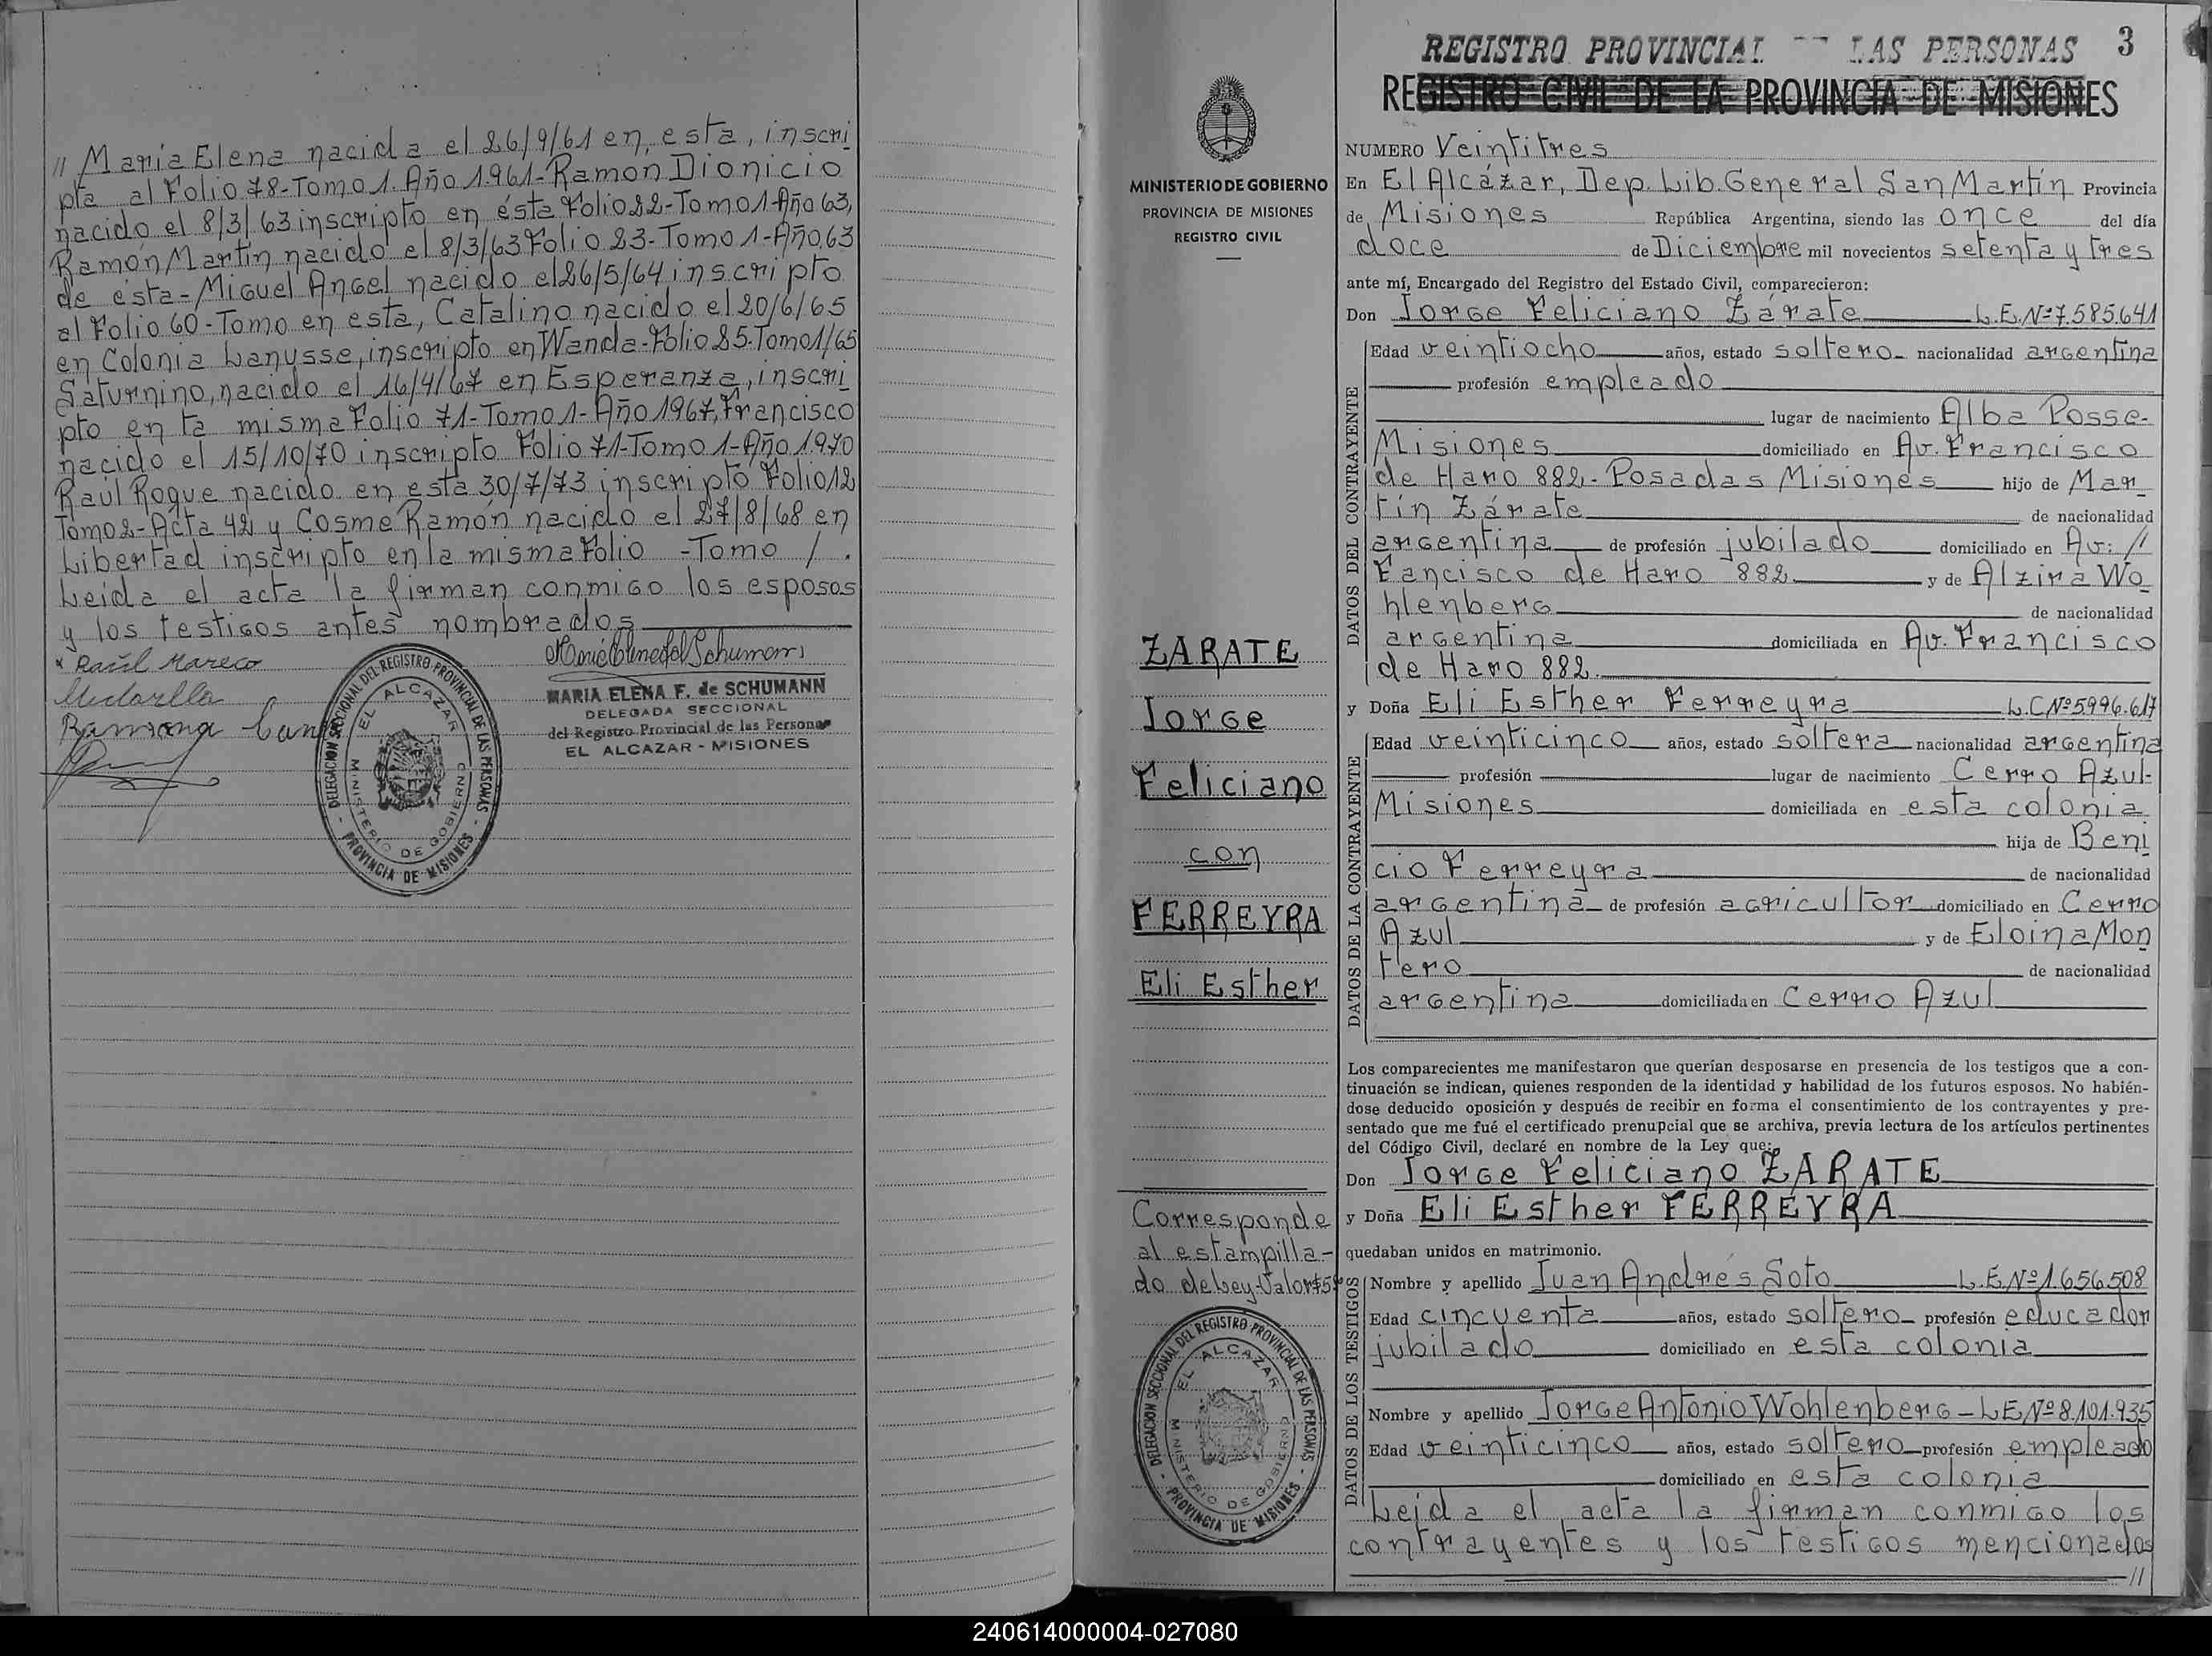 // María Elena nacida el 26/9/61 en esta, inscri
pta al Folio 78-Tomo 1. Año 1.961-Ramon Dionicio
nacido el 8/3/63 inscripto en ésta Folio 22-Tomo 1-Año 63,
Ramón Martín nacido el 8/3/63 Folio 23-Tomo 1-Año 63
de ésta-Miguel Angel nacido el 26/5/64 inscripto
al Folio 60-Tomo en esta, Catalino nacido el 20/6/65
en Colonia Lanusse, inscripto en Wanda-Folio 85-Tomo 1/65
Saturnino, nacido el 16/4/67 en Esperanza, inscri
pto en la misma Folio 71-Tomo 1-Año 1967, Francisco
nacido el 15/10/70 inscripto Folio 71-Tomo 1-Año 1.970
Raúl Roque nacido en esta 30/7/73 inscripto Folio 12
Tomo 2-Acta 42 y Cosme Ramón nacido el 27/8/68 en
Libertad inscripto en la misma Folio -Tomo / .
Leida el acta la firman conmigo los esposos
y los testigos antes nombrados
Raúl Mareco
Ramona
MARIA ELENA F. de SCHUMANN
DELEGADA SECCIONAL
del Registro Provincial de las Personas
EL ALCAZAR - MISIONES
DELEGACION SECCIONAL DEL REGISTRO PROVINCIAL DE LAS PERSONAS
EL ALCAZAR
MINISTERIO DE GOBIERNO
- PROVINCIA DE MISIONES -
MINISTERIO DE GOBIERNO
PROVINCIA DE MISIONES
REGISTRO CIVIL
ZARATE
Jorge
Feliciano
con
FERREYRA
Eli Esther
Corresponde
al estampilla-
do de Ley-Valor $5
DELEGACION SECCIONAL DEL REGISTRO PROVINCIAL DE LAS PERSONAS
EL ALCAZAR
MINISTERIO DE GOBIERNO
- PROVINCIA DE MISIONES -
REGISTRO PROVINCIAL LAS PERSONAS 3
REGISTRO CIVIL DE LA PROVINCIA DE MISIONES
NUMERO Veintitres
En El Alcázar, Dep. Lib. General San Martín Provincia
de Misiones República Argentina, siendo las once del día
doce de Diciembre mil novecientos setenta y tres
ante mí, Encargado del Registro del Estado Civil, comparecieron:
Don Jorge Feliciano Zárate L.E.Nº7.585.641
DATOS DEL CONTRAYENTE
Edad veintiocho años, estado soltero nacionalidad argentina
profesión empleado
lugar de nacimiento Alba Posse-
Misiones domiciliado en Av. Francisco
de Haro 882-Posadas Misiones hijo de Mar
tín Zárate de nacionalidad
argentina de profesión jubilado domiciliado en Av: //
Fancisco de Haro 882 y de Alzira Wo
hlenberg de nacionalidad
argentina domiciliada en Av. Francisco
de Haro 882.
y Doña Eli Esther Ferreyra L.C.Nº5.996.617
DATOS DE LA CONTRAYENTE
Edad veinticinco años, estado soltera nacionalidad argentina
profesión lugar de nacimiento Cerro Azul-
Misiones domiciliada en esta colonia
hija de Beni
cio Ferreyra de nacionalidad
argentina de profesión agricultor domiciliado en Cerro
Azul y de Eloina Mon
tero de nacionalidad
argentina domiciliada en Cerro Azul
Los comparecientes me manifestaron que querían desposarse en presencia de los testigos que a con-
tinuación se indican, quienes responden de la identidad y habilidad de los futuros esposos. No habién-
dose deducido oposición y después de recibir en forma el consentimiento de los contrayentes y pre-
sentado que me fué el certificado prenupcial que se archiva, previa lectura de los artículos pertinentes
del Código Civil, declaré en nombre de la Ley que:
Don Jorge Feliciano ZARATE
y Doña Eli Esther FERREYRA
quedaban unidos en matrimonio.
DATOS DE LOS TESTIGOS
Nombre y apellido Juan Andrés Soto L.E.Nº1.656.508
Edad cincuenta años, estado soltero profesión educador
jubilado domiciliado en esta colonia
Nombre y apellido Jorge Antonio Wohlenberg-L.E.Nº8.101.935
Edad veinticinco años, estado soltero profesión empleado
domiciliado en esta colonia
Leida el acta la firman conmigo los
contrayentes y los testigos mencionados
//
240614000004-027080